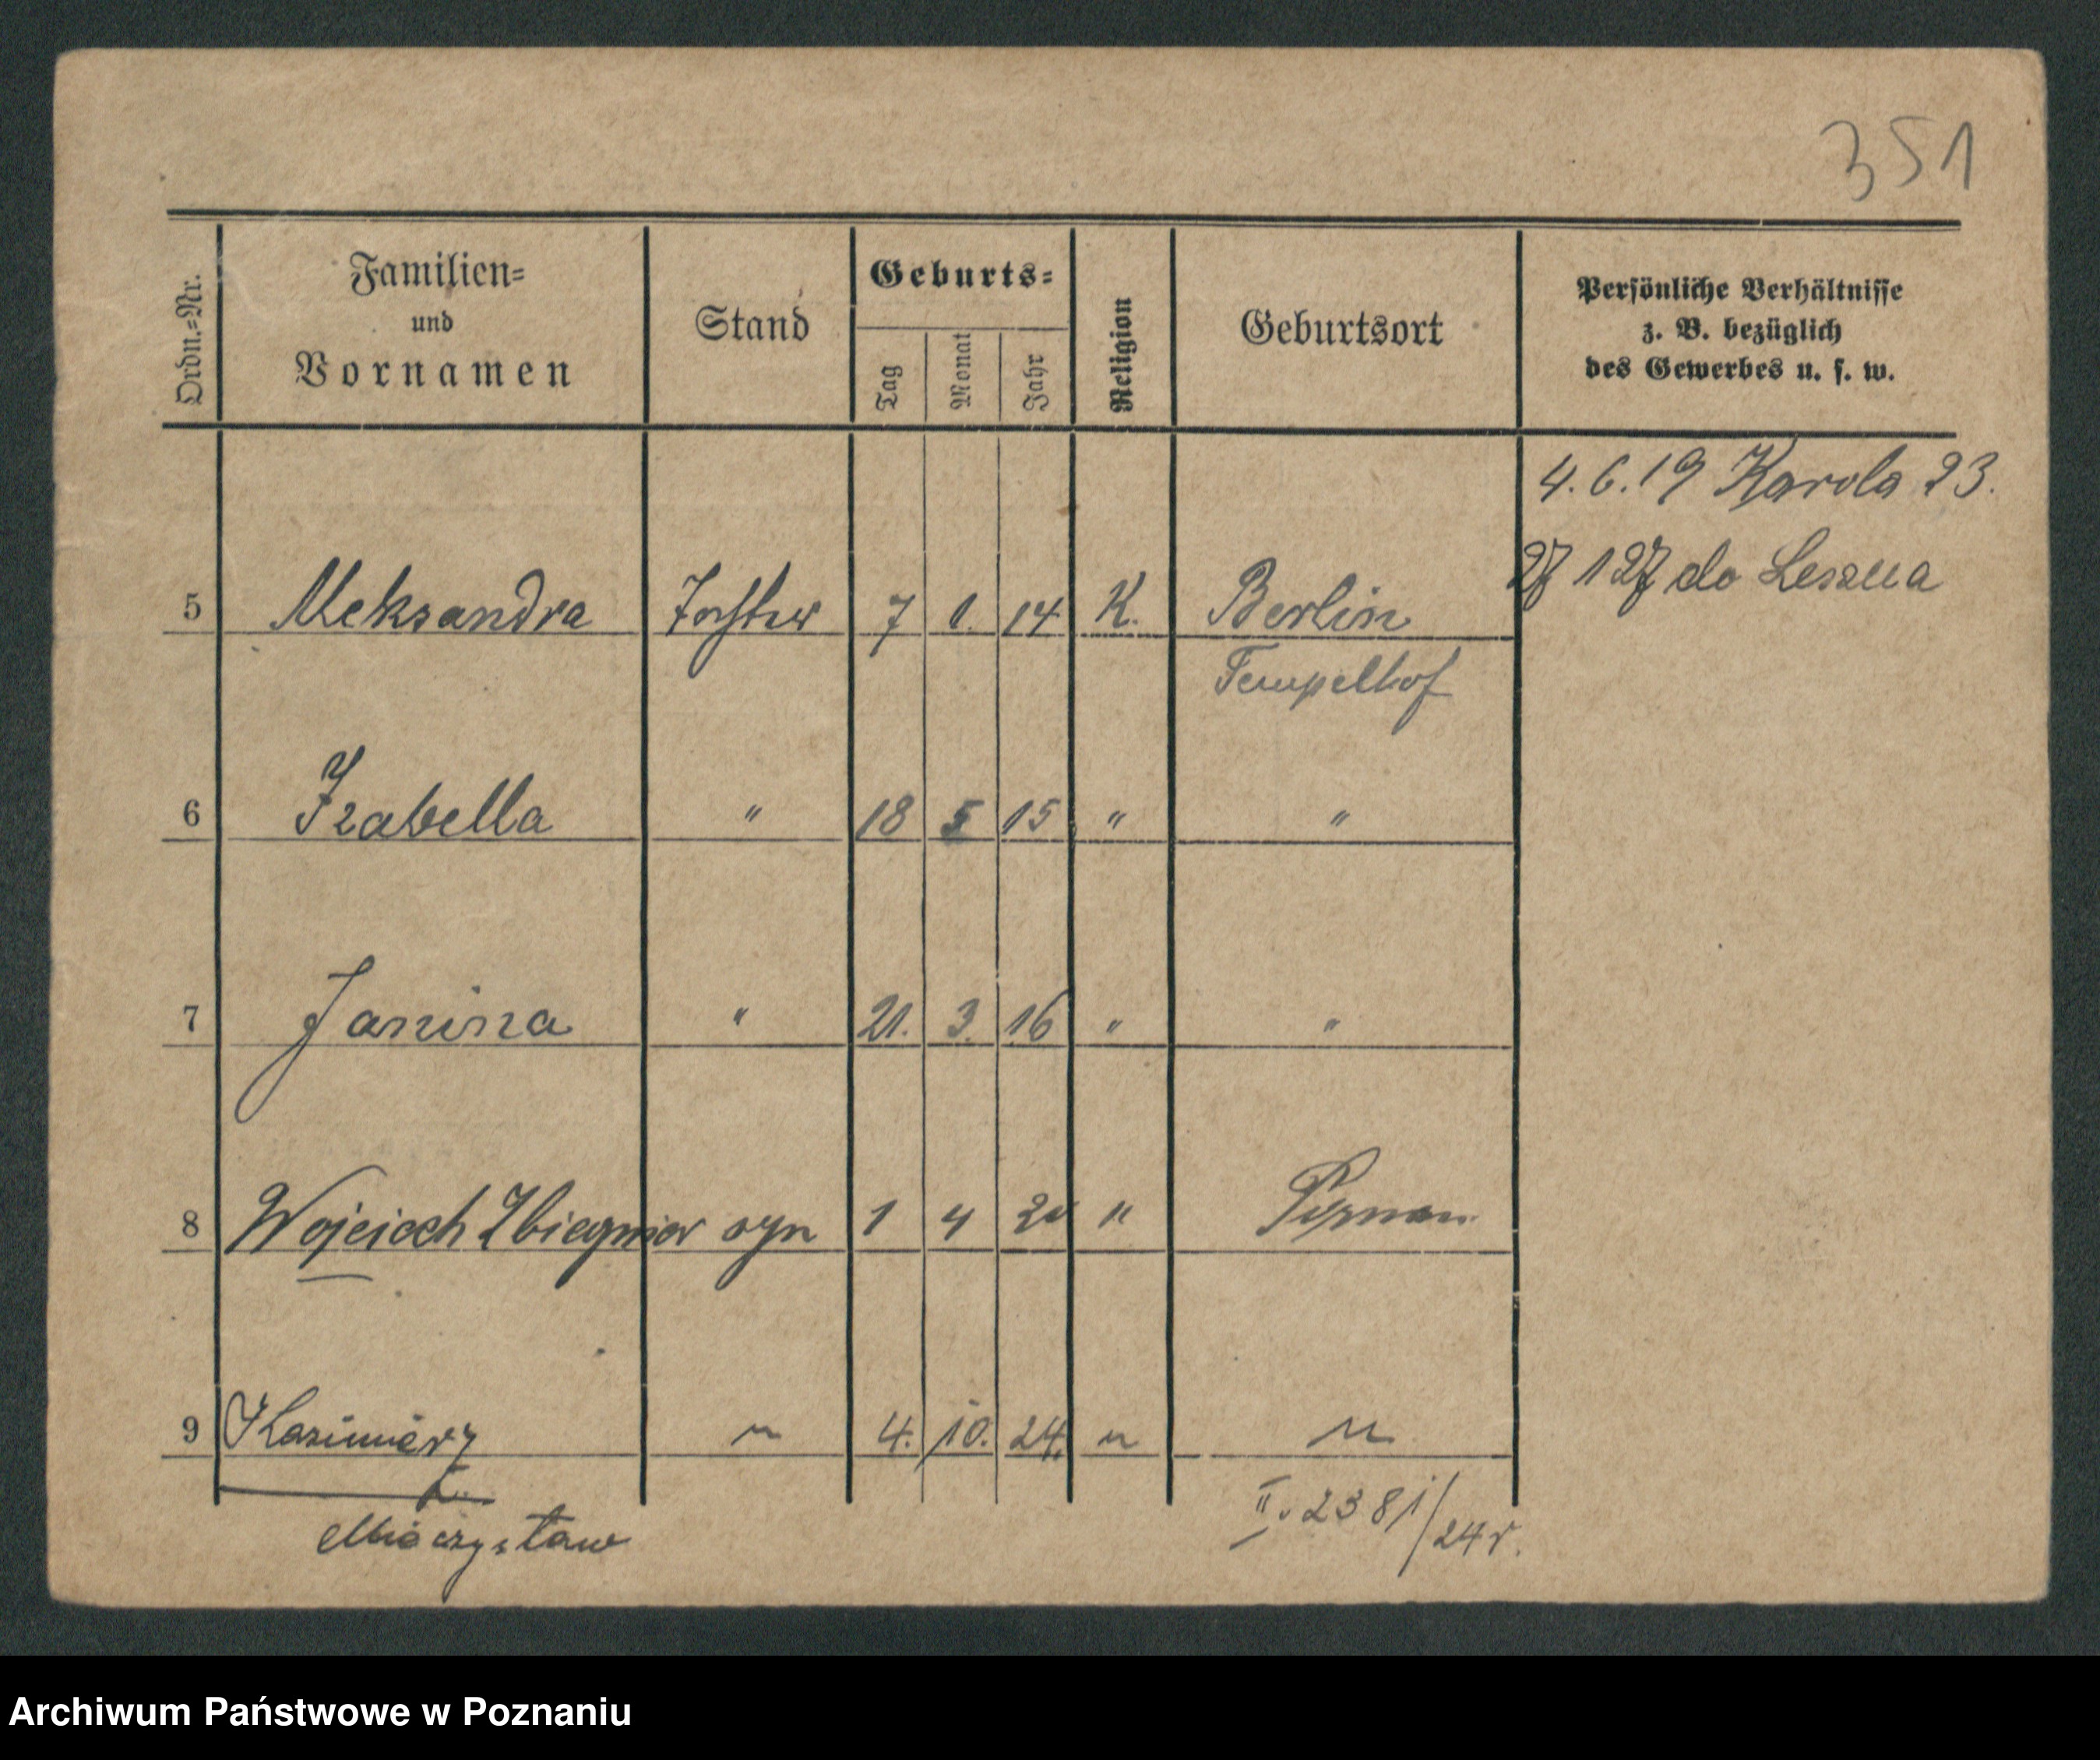 351
Ordn.=Nr.
Familien=
und
Vornamen
Stand
Geburts=
Tag
Monat
Jahr
Religion
Geburtsort
Persönliche Verhältnisse
z. B. bezüglich
des Gewerbes u. s. w.
4. 6. 19 Karola 23.
27 1 27 do Leszna
5 Aleksandra Tochter 7 1. 14 K. Berlin
Tempelhof
6 Izabella " 18 5 15 " "
7 Janina " 21. 3. 16 " "
8 Wojciech Zbiegniew syn 1 4 20 " Poznań
9 Kazimierz " 4. 10. 24. " "
Mieczysław
II. 2381/24 r.
Archiwum Państwowe w Poznaniu